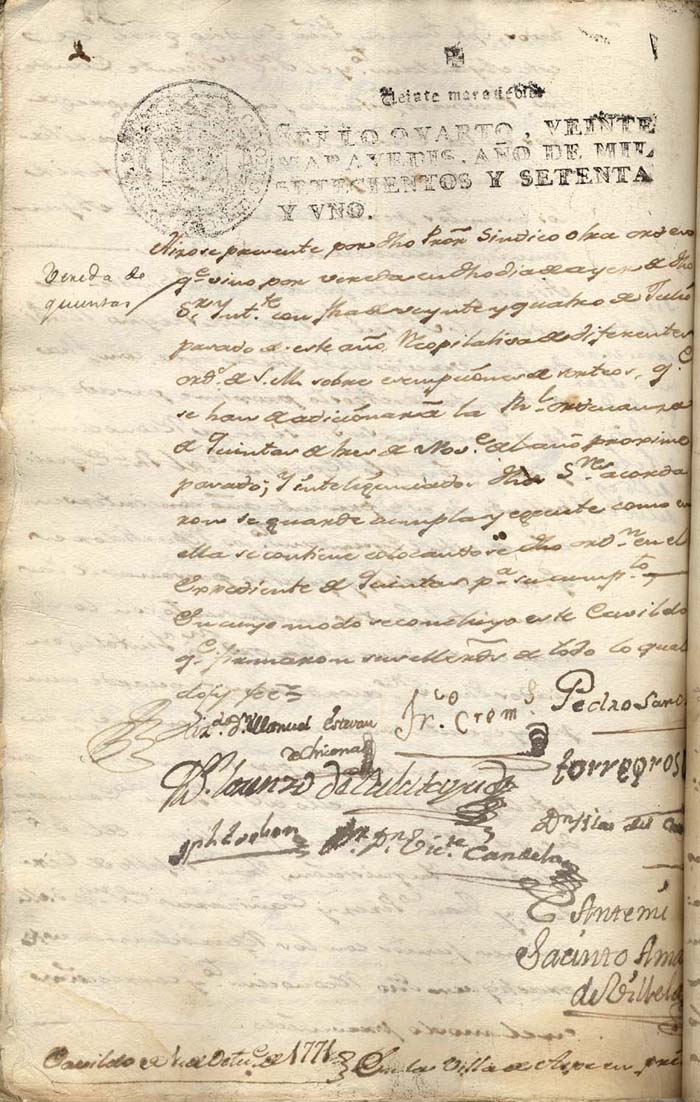 Veinte maravedis
SELLO QVARTO, VEINTE
MARAVEDIS, AÑO DE MIL
SETECIENTOS Y SETENTA
Y VNO.
Vereda de
quintas
Hizose presente por dho Pror Sindico otra orden
qe vino por vereda en dho dia de ayer de dho
Sr Intte con fha de veynte y quatro de Julio
pasado de este año Recopilativa de diferentes
ords de S.M. sobre exempciones de sorteos, qe
se han de adicionar a la Rl ordenanza
de Quintas de tres de Nove del año proximo
pasado; Y inteligenciados dhos Sres acorda
ron se guarde cumpla y execute como en
ella se contiene colocandose dho ordn en el
Expediente de Quintas pa su cumpto
En cuyo modo se concluyo este Cavildo
qe firmaron sus Mrds de todo lo qual
doy fee
Dn Manuel Estevan
Fro Crem
Pedro
torregros
Dn Victe Candela
Dn Blas del
Antemi
Jacinto Ama
de
Cavildo de 1 de Octe de 1771 En la Villa de Aspe en pri